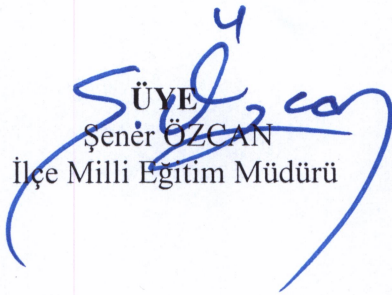 ÜYE
Şener ÖZCAN
İlçe Milli Eğitim Müdürü
S. Özcan